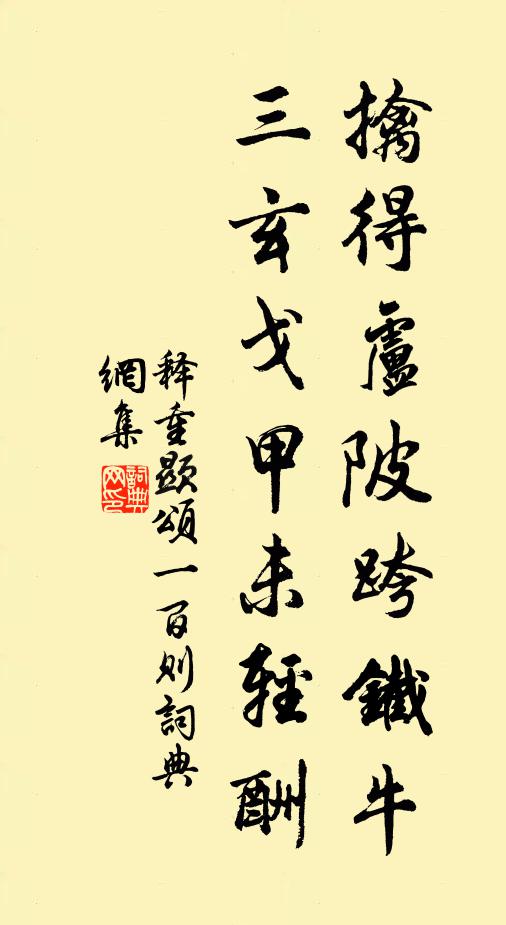 擒得盧陂跨鐵牛
三玄戈甲未輕酬
释重顯頌一百则詞典
網集
詞典
网印